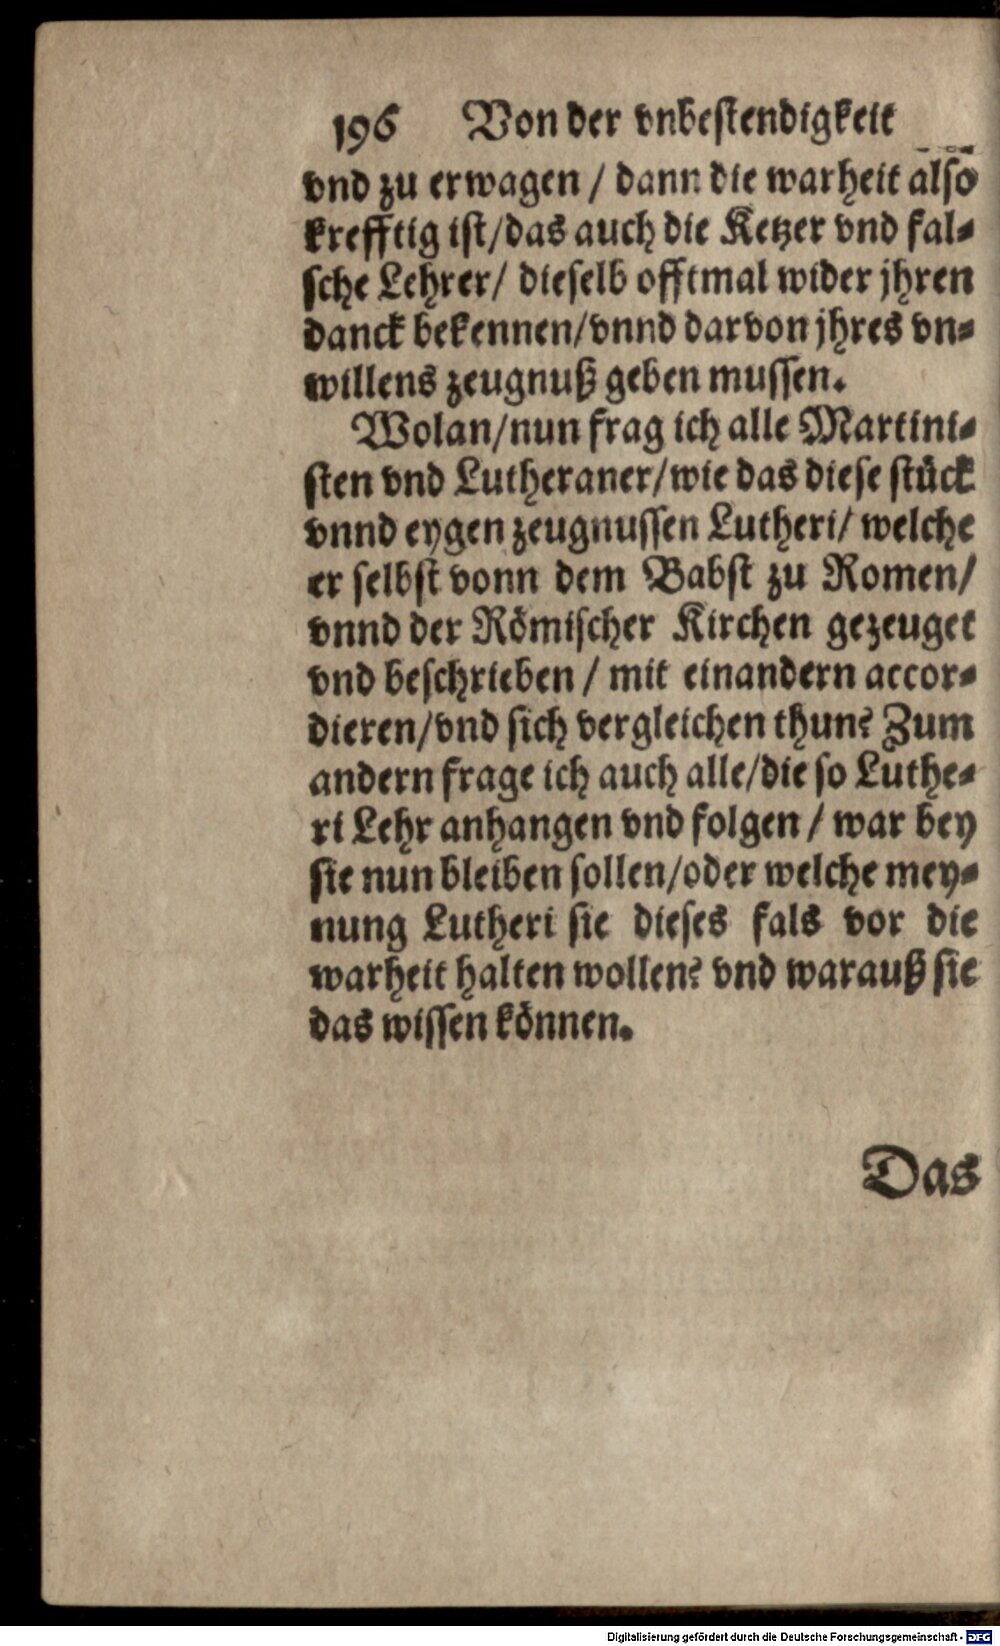 196 Von der vnbestendigkeit
vnd zu erwagen / dann die warheit also
krefftig ist/das auch die Ketzer vnd fal-
sche Lehrer/ dieselb offtmal wider jhren
danck bekennen/vnnd darvon jhres vn-
willens zeugnuß geben mussen.
Wolan/nun frag ich alle Martini-
sten vnd Lutheraner/wie das diese stück
vnnd eygen zeugnussen Lutheri/ welche
er selbst vonn dem Babst zu Romen/
vnnd der Römischer Kirchen gezeuget
vnd beschrieben / mit einandern accor-
dieren/vnd sich vergleichen thun? Zum
andern frage ich auch alle/die so Luthe-
ri Lehr anhangen vnd folgen / war bey
sie nun bleiben sollen/oder welche mey-
nung Lutheri sie dieses fals vor die
warheit halten wollen? vnd warauß sie
das wissen können.
Das
Digitalisierung gefördert durch die Deutsche Forschungsgemeinschaft - DFG